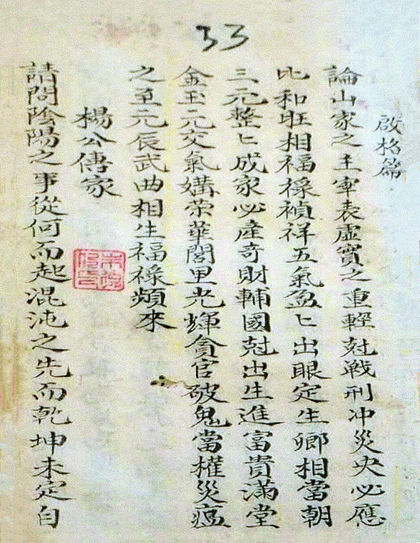 33
啟格篇
論山家之主宰表虛實之重輕尅戰刑冲災央必應
比和旺相福祿禎祥五氣盈匕出眼定生卿相當朝
三元整匕成家必產奇財輔國尅出生進富貴滿堂
金玉元交氣媾荣華閣里光輝貪官破鬼當權災瘟
之至元辰武曲相生福祿頻來
楊公傳家
請問陰陽之事從何而起混沌之先而乾坤未定自